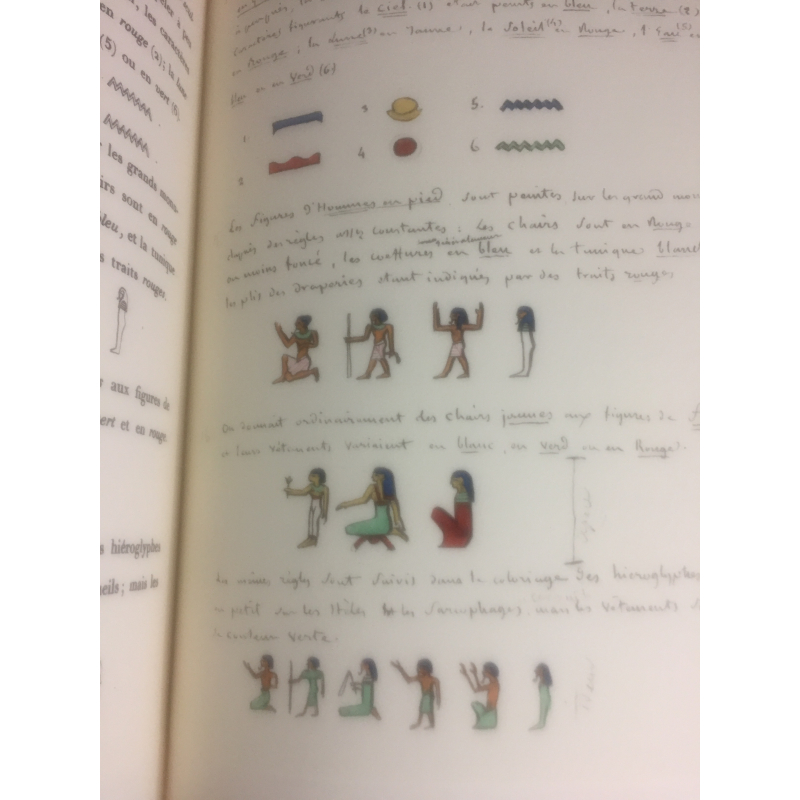 en rouge (2); la lune
(5) ou en vert (6)
les grands monu-
airs sont en rouge
bleu, et la tunique
s traits rouges.
aux figures de
ert et en rouge.
s hiéroglyphes
ueils; mais les
caractères figurants le Ciel (1) étant peints en bleu, la terre (2)
en Rouge; la Lune (3) en Jaune, le Soleil (4) en Rouge, l'Eau (5)
ou en verd (6)
1 3 5.
2 4 6
Les figures d'Hommes en pied sont peintes sur les grand mon
d'après des règles assez constantes; Les chairs sont en Rouge
ou moins foncé, les coeffures en bleu et la tunique blanche
les plis des draperies étant indiqués par des traits rouges
On donnait ordinairement des chairs jaunes aux figures de f
et leurs vêtements variaient en blanc, en verd ou en Rouge.
Les mêmes règles sont suivies dans le coloriage des hiéroglyphes
en petit sur les Stèles et les Sarcophages, mais les vêtements
la couleur verte.